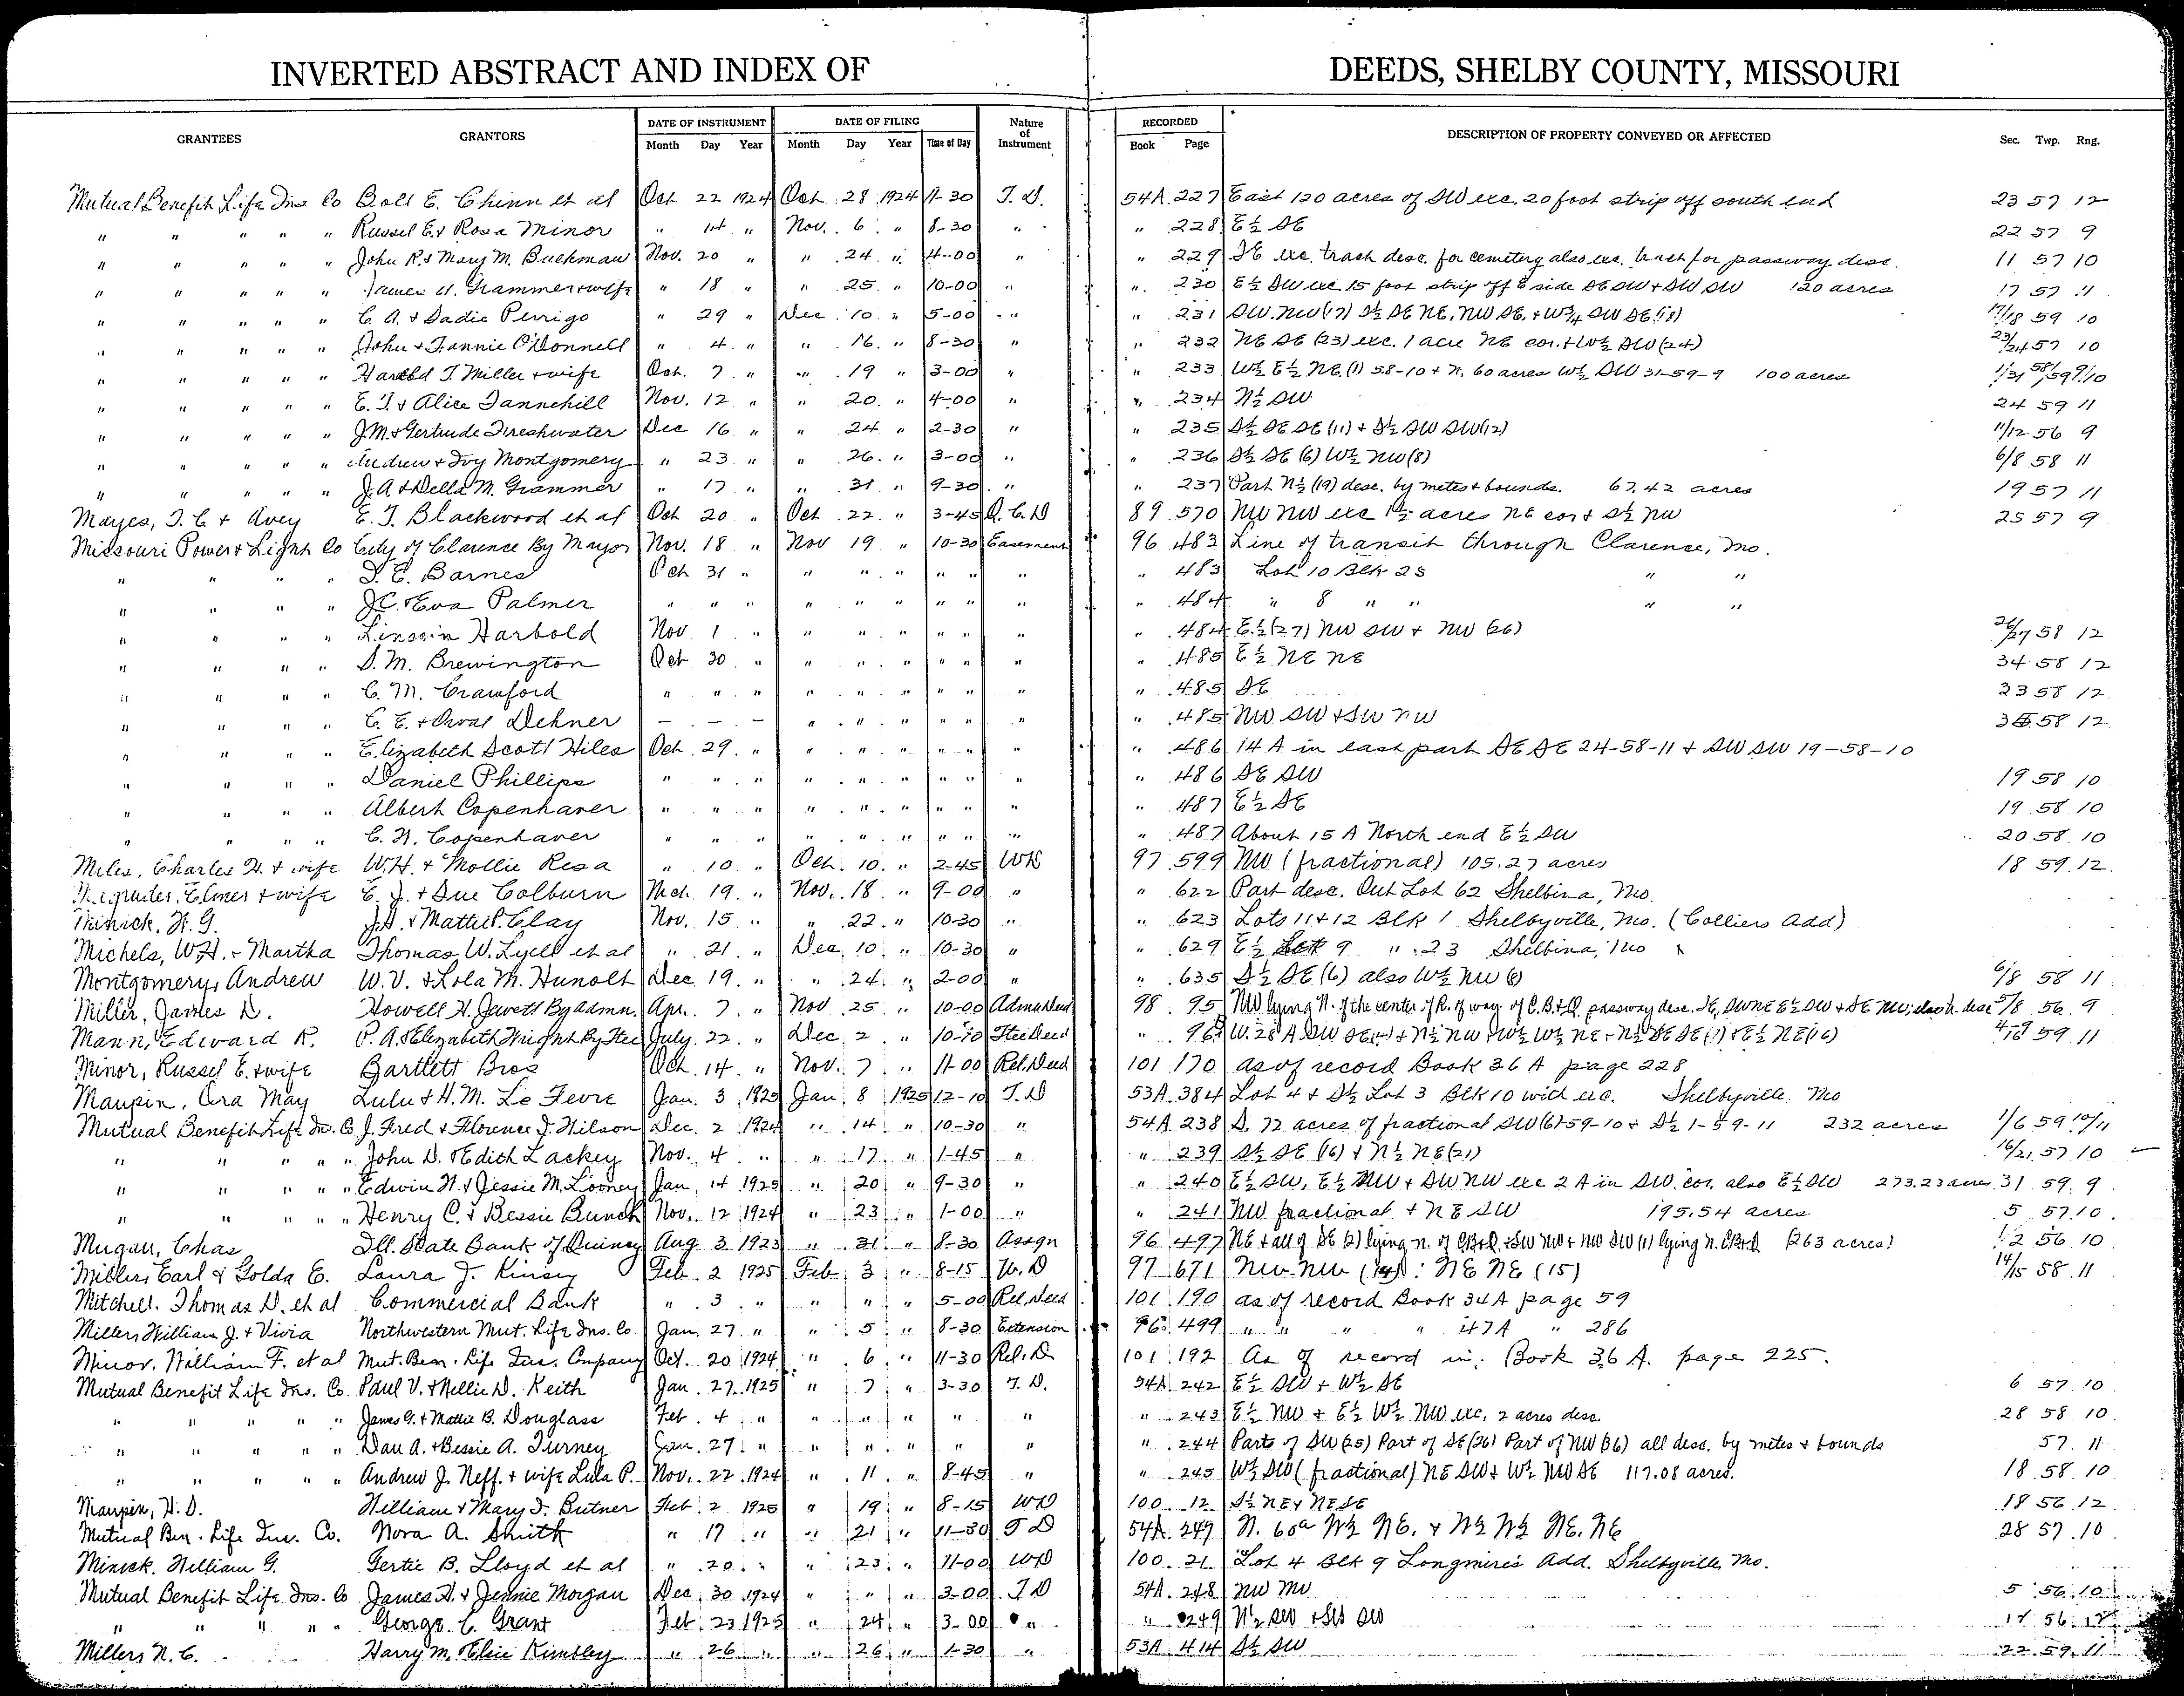 INVERTED ABSTRACT AND INDEX OF DEEDS, SHELBY COUNTY, MISSOURI
GRANTEES GRANTORS DATE OF INSTRUMENT DATE OF FILING Nature of Instrument RECORDED DESCRIPTION OF PROPERTY CONVEYED OR AFFECTED Sec. Twp. Rng.
Month Day Year Month Day Year Time of Day Book Page
Mutual Benefit Life Ins Co E. Chinn et al Oct 22 1924 Oct 28 1924 11-30 T. D. 54A 227 East 120 acres of SW exc. 20 foot strip off south end 23 57 12
" " " " " Russel E. & Rosa Minor " 14 " Nov. 6 " 8-30 " " 228 E½ SE 22 57 9
" " " " " John R. & Mary M. Buckman Nov. 20 " " 24 " 4-00 " " 229 SE exc. tract desc. for cemetery also exc. tract for passway desc. 11 57 10
" " " " " James A. Grammer & wife " 18 " " 25 " 10-00 " " 230 E½ SW exc 15 foot strip off E side SE SW & SW SW 120 acres 17 57 11
" " " " " C. A. & Sadie Perrigo " 29 " Dec 10 " 5-00 " " 231 SW NW (17) S½ SE NE, NW SE, & W¾ SW SE (18) 17/18 59 10
" " " " " John & Fannie O'Donnell " 4 " " 16 " 8-30 " " 232 NE SE (23) exc. 1 acre NE cor. & W½ SW (24) 23/24 57 10
" " " " " Harold T. Miller & wife Oct. 7 " " 19 " 3-00 " " 233 W½ E½ NE (1) 58-10 & N. 60 acres W½ SW 31-59-9 100 acres 1/31 58/59 9/10
" " " " " E. T. & Alice Tannehill Nov. 12 " " 20 " 4-00 " " 234 N½ SW 24 59 11
" " " " " J.M. & Gertrude Freshwater Dec 16 " " 24 " 2-30 " " 235 S½ SE SE (11) & S½ SW SW (12) 11/12 56 9
" " " " " Andrew & Ivy Montgomery " 23 " " 26 " 3-00 " " 236 S½ SE (6) W½ NW (8) 6/8 58 11
" " " " " J. A. & Della M. Grammer " 17 " " 31 " 9-30 " " 237 Part N½ (19) desc. by metes & bounds. 67.42 acres 19 57 11
Mayes, T. C. & Avey E. T. Blackwood et al Oct 20 " Oct 22 " 3-45 Q. C. D 89 570 NW NW exc 1½ acres NE cor & S½ NW 25 57 9
Missouri Power & Light Co City of Clarence By Mayor Nov. 18 " Nov 19 " 10-30 Easement 96 483 Line of transit through Clarence, Mo.
" " " " Barnes Oct 31 " " " " " " " " 483 Lot 10 Blk 25 " "
" " " " J.C. & Eva Palmer " " " " " " " " " " 484 " 8 " " " "
" " " " Harbold Nov. 1 " " " " " " " " 484 E½ (27) NW SW & NW (26) 26/27 58 12
" " " " S. M. Brewington Oct. 30 " " " " " " " " 485 E½ NE NE 34 58 12
" " " " C. M. Crawford " " " " " " " " " " 485 SE 23 58 12
" " " " C. E. & Orval Dehner – – – " " " " " " " 485 NW SW & SW NW 35 58 12
" " " " Elizabeth Scott Hiles Oct. 29 " " " " " " " " 486 14 A in east part SE SE 24-58-11 & SW SW 19-58-10
" " " " Daniel Phillips " " " " " " " " " " 486 SE SW 19 58 10
" " " " Albert Copenhaver " " " " " " " " " " 487 E½ SE 19 58 10
" " " " C. N. Copenhaver " " " " " " " " " " 487 About 15 A North end E½ SW 20 58 10
Miles, Charles H. & wife W.H. & Mollie Resa " 10 " Oct. 10 " 2-45 WD 97 599 NW (fractional) 105.27 acres 18 59 12
Elmer & wife E. J. & Sue Colburn Mch. 19 " Nov. 18 " 9-00 " " 622 Part desc. Out Lot 62 Shelbina, Mo.
Minick, W. G. & Mattie P. Clay Nov. 15 " " 22 " 10-30 " " 623 Lots 11 & 12 Blk 1 Shelbyville, Mo. (Colliers Add)
Michels, W.H. & Martha Thomas W. Lyell et al " 21 " Dec 10 " 10-30 " " 629 E½ Lot 9 " 23 Shelbina, Mo
Montgomery, Andrew W. V. & Lola M. Hunolt Dec 19 " " 24 " 2-00 " " 635 S½ SE (6) also W½ NW (8) 6/8 58 11
Miller, James D. Howell H. Jewett By Admn. Apr. 7 " Nov 25 " 10-00 Admn Deed 98 95 NW lying N. of the center of R. of way of C.B.&Q. passway desc. SE, SW NE E½ SW & SE NW; also tr. desc 5/8 56 9
Mann, Edward R. P. A. & Elizabeth Wright By Ttee July 22 " Dec 2 " 10-10 Ttee Deed " 96 59 11
Minor, Russel E. & wife Bartlett Bros Oct. 14 " Nov. 7 " 11-00 Rel. Deed 101 170 as of record Book 36 A page 228
Maupin, Ora May Lulu & H.M. Le Fevre Jan. 3 1925 Jan 8 1925 12-10 T. D 53A 384 Lot 4 & S½ Lot 3 Blk 10 with exc. Shelbyville Mo
Mutual Benefit Life Ins. Co J. Fred & Florence I. Wilson Dec. 2 1924 " 14 " 10-30 " 54A 238 S. 72 acres of fractional SW (6) 59-10 & S½ 1-59-11 232 acres 1/6 59 10/11
" " " " " John D. & Edith Lackey Nov. 4 " " 17 " 1-45 " " 239 S½ SE (16) & N½ NE (21) 16/21 57 10
" " " " " Edwin N. & Jessie M. Looney Jan. 14 1925 " 20 " 9-30 " " 240 E½ SW, E½ NW & SW NW exc 2 A in SW. cor. also E½ SW 273.23 acres 31 59 9
" " " " " Henry C. & Bessie Bunch Nov. 12 1924 " 23 " 1-00 " " 241 NW fractional & NE SW 195.54 acres 5 57 10
Mugan, Chas Ill. State Bank of Quincy Aug 3 1923 " 31 " 8-30 Assgn 96 497 NE & all of SE (2) lying n. of CB&Q & SW NW & NW SW (1) lying N. CB&Q (263 acres) 1/2 56 10
Miller, Earl & Golda E. Laura J. Kinsey Feb. 2 1925 Feb 3 " 8-15 W. D 97 671 NW NW (14) : NE NE (15) 14/15 58 11
Mitchell, Thomas D. et al Commercial Bank " 3 " " " " 5-00 Rel. Deed 101 190 as of record Book 34A page 59
Miller, William J. & Vivia Northwestern Mut. Life Ins. Co. Jan. 27 " " 5 " 8-30 Extension 96 499 " " " " 47A " 286
Minor, William F. et al Mut. Ben. Life Ins. Company Oct. 20 1924 " 6 " 11-30 Rel. D 101 192 As of record in Book 36 A. page 225.
Mutual Benefit Life Ins. Co. Paul V. & Nellie D. Keith Jan. 27 1925 " 7 " 3-30 T. D. 54A 242 E½ SW & W½ SE 6 57 10
" " " " " James G. & Mattie B. Douglass Feb. 4 " " " " " " " 243 E½ NW & E½ W½ NW exc. 2 acres desc. 28 58 10
" " " " " Dan A. & Bessie A. Turney Jan. 27 " " " " " " " 244 Parts of SW (25) Part of SE (26) Part of NW (36) all desc. by metes & bounds 57 11
" " " " " Andrew J. Neff & wife Lula P. Nov. 22 1924 " 11 " 8-45 " " 245 W½ SW (fractional) NE SW & W½ NW SE 117.08 acres. 18 58 10
Maupin, H. D. William & Mary I. Butner Feb 2 1925 " 19 " 8-15 WD 100 12 S½ NE & NE SE 18 56 12
Mutual Ben. Life Ins. Co. Nora A. Smith " 17 " " 21 " 11-30 T D 54A 247 N. 60a W½ NE. & W½ W½ NE. NE 28 57 10
Minick, William G. Gertie B. Lloyd et al " 20 " " 23 " 11-00 WD 100 21 Lot 4 Blk 9 Longmire's Add. Shelbyville, Mo.
Mutual Benefit Life Ins. Co James H. & Jennie Morgan Dec. 30 1924 " " " 3-00 T D 54A 248 NW NW 5 56 10
" " " " " George C. Grant Feb 23 1925 " 24 " 3-00 " " 249 N½ SW & SW SW 17 56
Miller, N. C. Harry M. Kimbley " 26 " " 26 " 1-30 " 53A 414 S½ SW 22 59 11